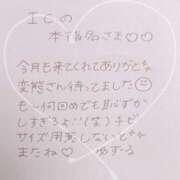 ICの
本指名さま♡♡
今月も来てくれてありがとう
変態さん待ってました☺
も〜何回めでも恥ずか
しすぎるよ!!(笑)チビ
サイズ用意しないとね
またね♡ ゆずる